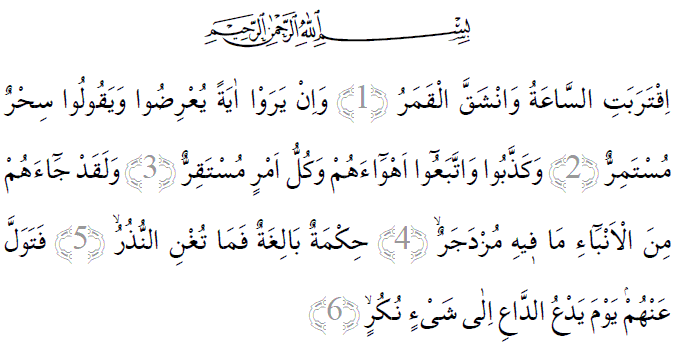 بِسْمِ اللّٰهِ الرَّحْمٰنِ الرَّحِيمِ
اِقْتَرَبَتِ السَّاعَةُ وَانْشَقَّ الْقَمَرُ ﴿1﴾ وَاِنْ يَرَوْا اٰيَةً يُعْرِضُوا وَيَقُولُوا سِحْرٌ
مُسْتَمِرٌّ ﴿2﴾ وَكَذَّبُوا وَاتَّبَعُٓوا اَهْوَٓاءَهُمْ وَكُلُّ اَمْرٍ مُسْتَقِرٌّ ﴿3﴾ وَلَقَدْ جَٓاءَهُمْ
مِنَ الْاَنْبَٓاءِ مَا ف۪يهِ مُزْدَجَرٌۙ ﴿4﴾ حِكْمَةٌ بَالِغَةٌ فَمَا تُغْنِ النُّذُرُۙ ﴿5﴾ فَتَوَلَّ
عَنْهُمْۢ يَوْمَ يَدْعُ الدَّاعِ اِلٰى شَيْءٍ نُكُرٍۙ ﴿6﴾